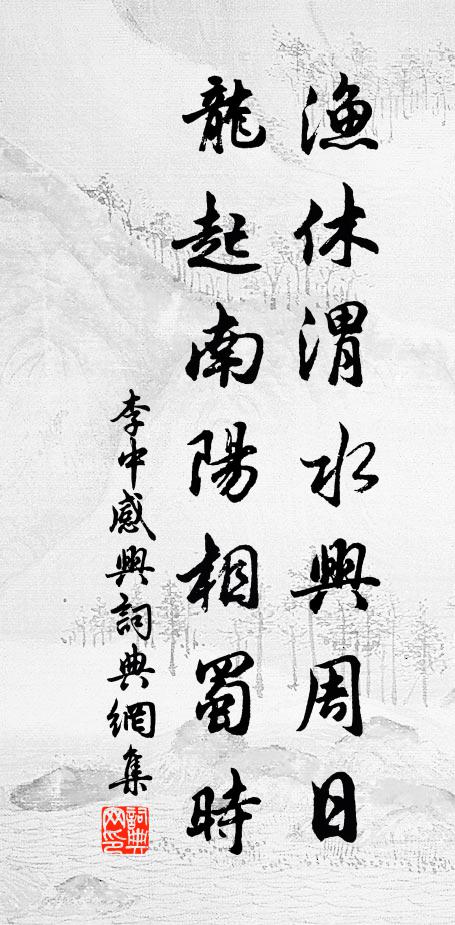 漁休渭水興周日
龍起南陽相蜀時
李中感興詞典網集
詞典网印